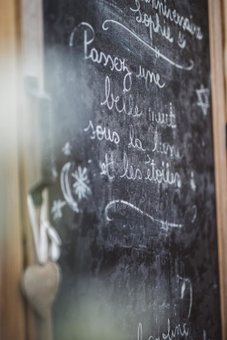 anniversaire
Sophie
Passez une
belle nuit
sous la lune
et les étoiles
Caroline